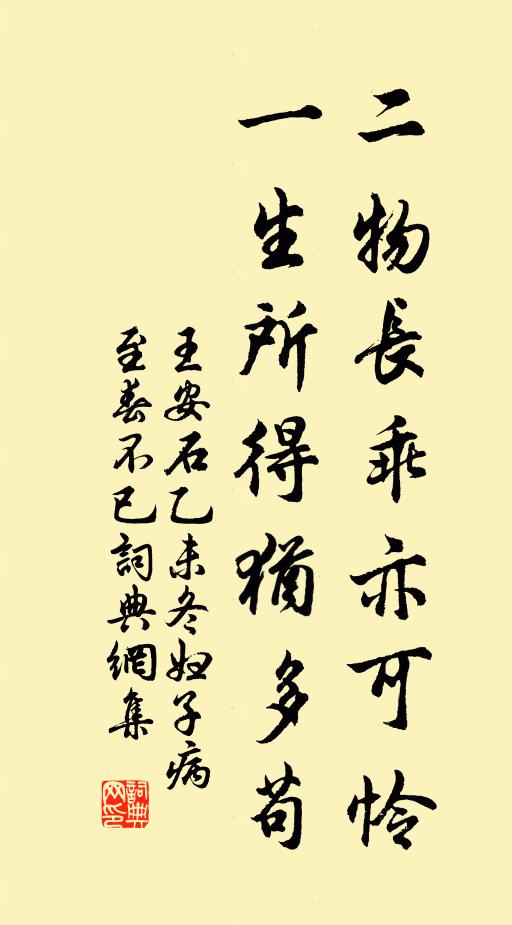 二物長乖亦可怜
一生所得猶多苟
王安石乙未冬妇子病
至春不已詞典網集
詞典网印